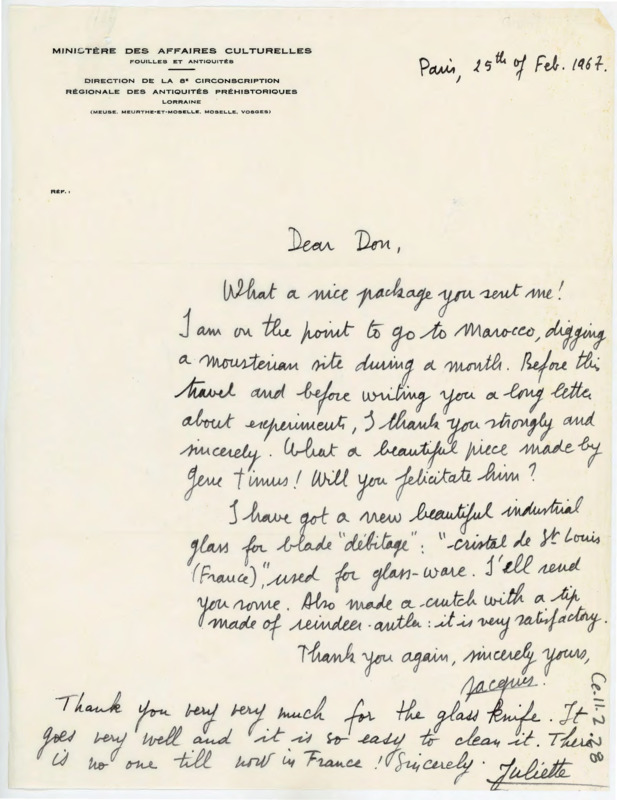 MINISTÈRE DES AFFAIRES CULTURELLES
FOUILLES ET ANTIQUITÉS
DIRECTION DE LA 6e CIRCONSCRIPTION
RÉGIONALE DES ANTIQUITÉS PRÉHISTORIQUES
LORRAINE
(MEUSE, MEURTHE-ET-MOSELLE, MOSELLE, VOSGES)
Paris, 25th of Feb. 1967.
REF. :
Dear Don,
What a nice package you sent me!
I am on the point to go to Marocco, digging
a mousterian site during a month. Before this
travel and before writing you a long letter
about experiments, I thank you strongly and
sincerely. What a beautiful piece made by
Gene Timus! Will you felicitate him?
I have got a new beautiful industrial
glass for blade "débitage": "-cristal de St Louis
(France)," used for glass-ware. I'ell send
you some. Also made a crutch with a tip
made of reindeer-antler: it is very satisfactory.
Thank you again, sincerely yours,
Jacques.
Thank you very very much for the glass knife. It
goes very well and it is so easy to clean it. There
is no one till now in France! Sincerely. Juliette
Ce.11.2.78